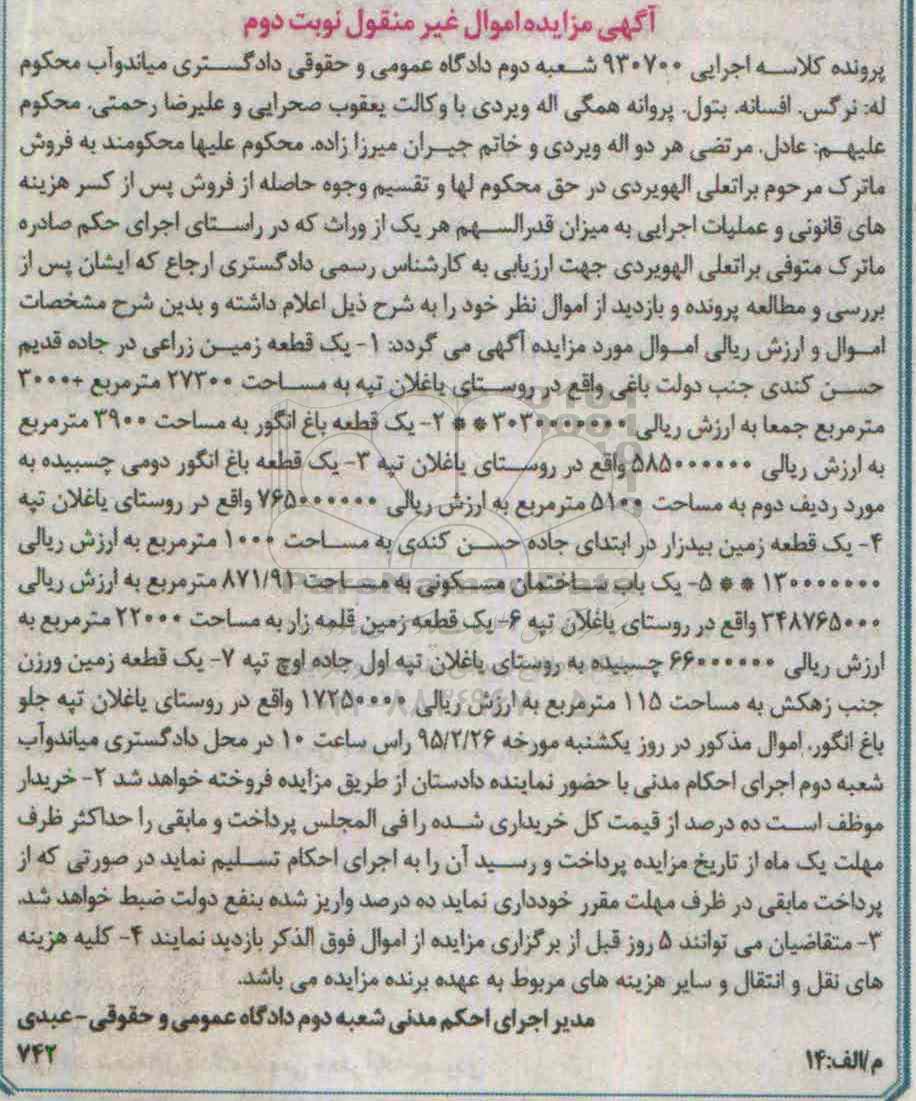 آگهی مزایده اموال غیر منقول نوبت دوم
پرونده کلاسه اجرایی ۹۳۰۷۰۰ شعبه دوم دادگاه عمومی و حقوقی دادگستری میاندوآب محکوم
له: نرگس. افسانه. بتول. پروانه همگی اله ویردی با وکالت یعقوب صحرایی و علیرضا رحمتی. محکوم
علیهم: عادل. مرتضی هر دو اله ویردی و خاتم جیران میرزا زاده. محکوم علیها محکومند به فروش
ماترک مرحوم براتعلی الهویردی در حق محکوم لها و تقسیم وجوه حاصله از فروش پس از کسر هزینه
های قانونی و عملیات اجرایی به میزان قدرالسهم هر یک از وراث که در راستای اجرای حکم صادره
ماترک متوفی براتعلی الهویردی جهت ارزیابی به کارشناس رسمی دادگستری ارجاع که ایشان پس از
بررسی و مطالعه پرونده و بازدید از اموال نظر خود را به شرح ذیل اعلام داشته و بدین شرح مشخصات
اموال و ارزش ریالی اموال مورد مزایده آگهی می گردد: ۱- یک قطعه زمین زراعی در جاده قدیم
حسن کندی جنب دولت باغی واقع در روستای یاغلان تپه به مساحت ۲۷۳۰۰ مترمربع +۳۰۰۰
مترمربع جمعا به ارزش ریالی ۳۰۳۰۰۰۰۰۰۰ ** ۲- یک قطعه باغ انگور به مساحت ۳۹۰۰ مترمربع
به ارزش ریالی ۵۸۵۰۰۰۰۰۰ واقع در روستای یاغلان تپه ۳- یک قطعه باغ انگور دومی چسبیده به
مورد ردیف دوم به مساحت ۵۱۰۰ مترمربع به ارزش ریالی ۷۶۵۰۰۰۰۰۰ واقع در روستای یاغلان تپه
۴- یک قطعه زمین بیدزار در ابتدای جاده حسن کندی به مساحت ۱۰۰۰ مترمربع به ارزش ریالی
۱۳۰۰۰۰۰۰۰ ** ۵- یک باب ساختمان مسکونی به مساحت ۸۷۱/۹۱ مترمربع به ارزش ریالی
۳۴۸۷۶۵۰۰۰ واقع در روستای یاغلان تپه ۶- یک قطعه زمین قلمه زار به مساحت ۲۲۰۰۰ مترمربع به
ارزش ریالی ۶۶۰۰۰۰۰۰ چسبیده به روستای یاغلان تپه اول جاده اوچ تپه ۷- یک قطعه زمین ورزن
جنب زهکش به مساحت ۱۱۵ مترمربع به ارزش ریالی ۱۷۲۵۰۰۰۰ واقع در روستای یاغلان تپه جلو
باغ انگور. اموال مذکور در روز یکشنبه مورخه ۹۵/۲/۲۶ راس ساعت ۱۰ در محل دادگستری میاندوآب
شعبه دوم اجرای احکام مدنی با حضور نماینده دادستان از طریق مزایده فروخته خواهد شد ۲- خریدار
موظف است ده درصد از قیمت کل خریداری شده را فی المجلس پرداخت و مابقی را حداکثر ظرف
مهلت یک ماه از تاریخ مزایده پرداخت و رسید آن را به اجرای احکام تسلیم نماید در صورتی که از
پرداخت مابقی در ظرف مهلت مقرر خودداری نماید ده درصد واریز شده بنفع دولت ضبط خواهد شد.
۳- متقاضیان می توانند ۵ روز قبل از برگزاری مزایده از اموال فوق الذکر بازدید نمایند ۴- کلیه هزینه
های نقل و انتقال و سایر هزینه های مربوط به عهده برنده مزایده می باشد.
مدیر اجرای احکم مدنی شعبه دوم دادگاه عمومی و حقوقی-عبدی
م/الف:۱۴ ۷۴۲